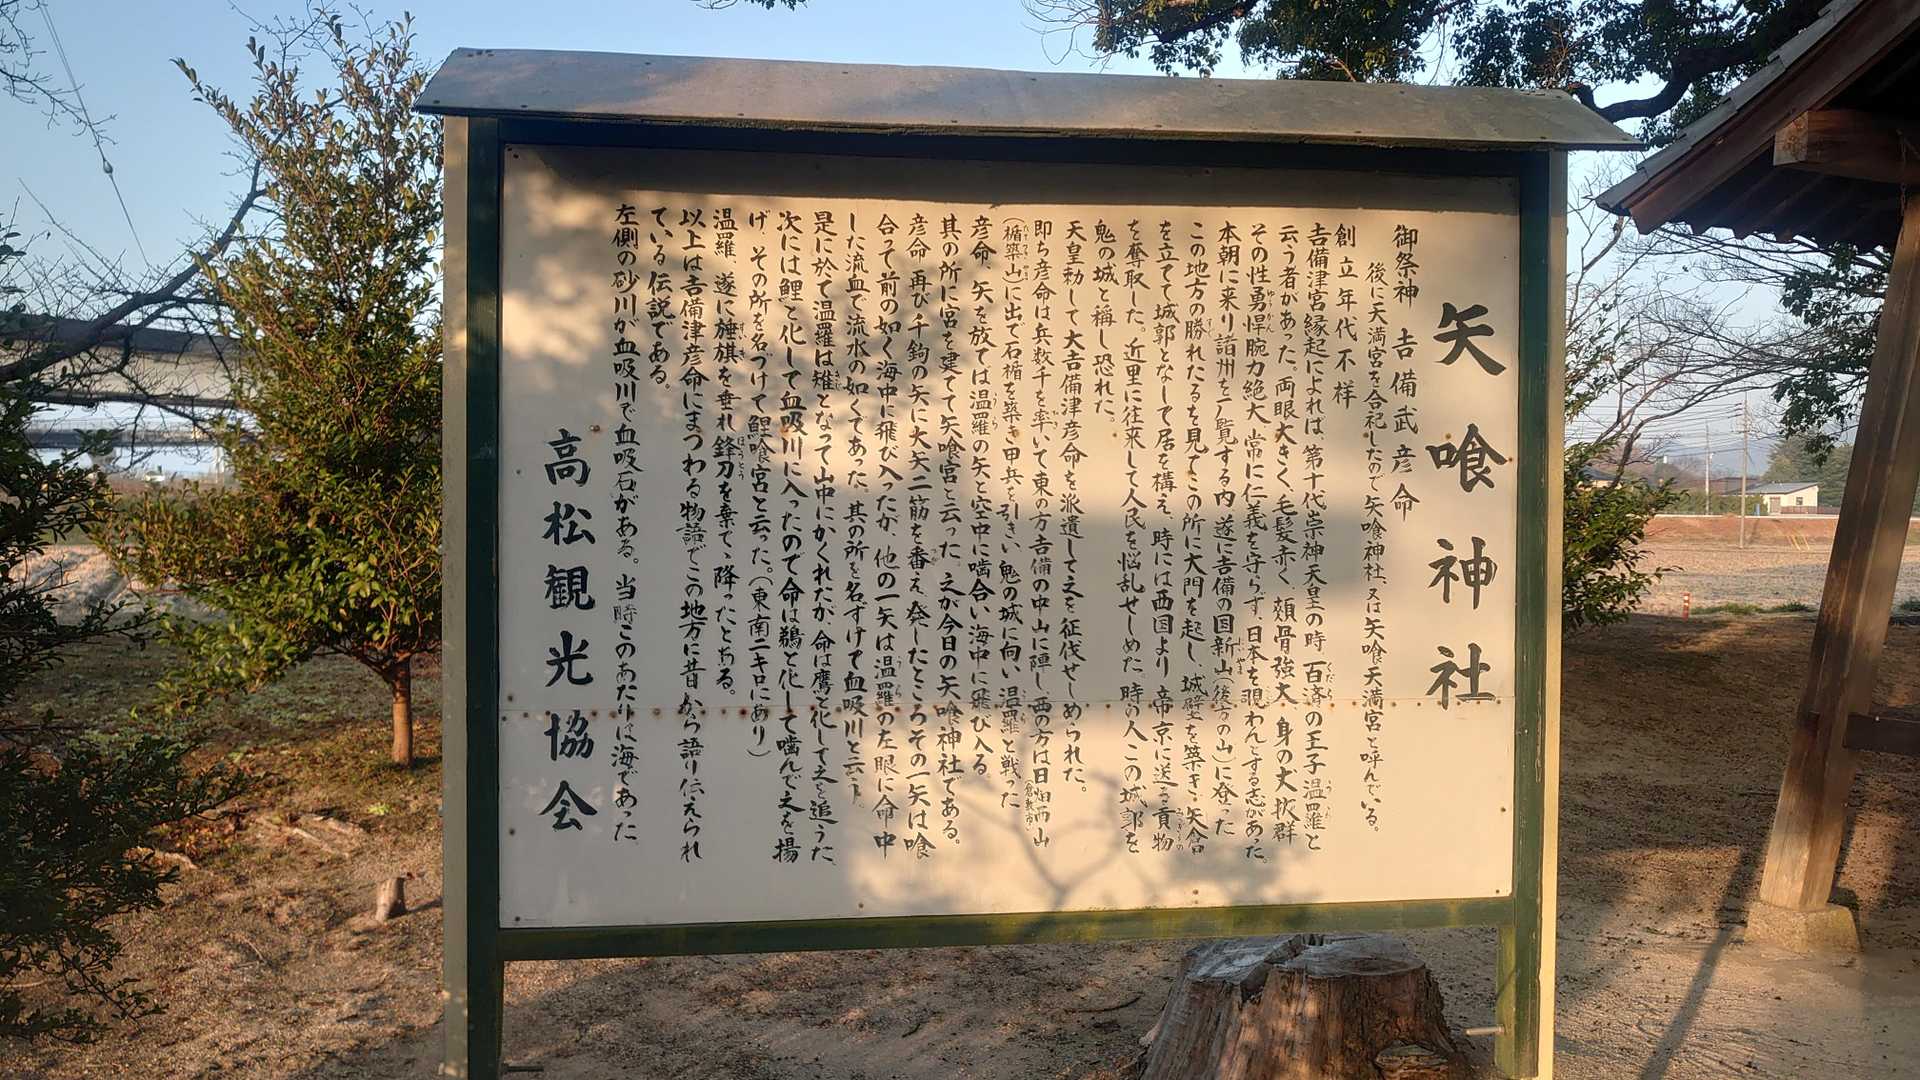 矢喰神社
御祭神 吉備武彦命
後に天満宮を合祀したので矢喰神社、又は矢喰天満宮と呼んでいる。
創立年代不祥
吉備津宮縁起によれば、第十代崇神天皇の時 百済の王子温羅と
云う者があった。両眼大きく、毛髪赤く、頬骨強大、身の丈抜群
その性勇悍腕力絶大、常に仁義を守らず、日本を覗わんとする志があった。
本朝に来り諸州を一覧する内、遂に吉備の国新山(後方の山)に登った
この地方の勝れたるを見てこの所に大門を起し、城壁を築き、矢倉
を立てて城郭となして居を構え、時には西国より帝京に送る貢物
を奪取した。近里に往来して人民を悩乱せしめた、時の人この城郭を
鬼の城と稱し恐れた。
天皇勅して大吉備津彦命を派遣して之を征伐せしめられた。
即ち彦命は兵数千を率いて東の方吉備の中山に陣し、西の方は日畑西山(倉敷市)
(楯築山)に出で石楯を築き甲兵を引きい、鬼の城に向い、温羅と戦った
彦命、矢を放てば温羅の矢と空中に噛合い海中に飛び入る
其の所に宮を建てて矢喰宮と云った。之が今日の矢喰神社である。
彦命 再び千鈞の矢に大矢二筋を番え、発したところその一矢は喰
合って前の如く海中に飛び入ったが、他の一矢は温羅の左眼に命中
した流血で流水の如くであった。其の所を名ずけて血吸川と云う。
是に於て温羅は雉となって山中にかくれたが、命は鷹と化して之を追うた、
次には鯉と化して血吸川に入ったので命は鵜と化して噛んで之を揚
げ、その所を名づけて鯉喰宮と云った。(東南二キロにあり)
温羅 遂に旌旗を垂れ鋒刃を棄てて降ったとある。
以上は吉備津彦命にまつわる物語でこの地方に昔から語り伝えられ
ている伝説である。
左側の砂川が血吸川で血吸石がある。当時このあたりは海であった。
高松観光協会